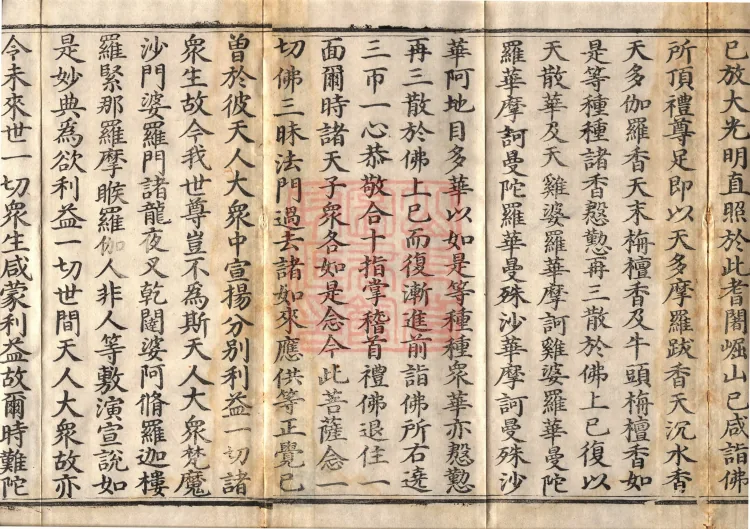 已放大光明直照於此耆闍崛山已咸詣佛
所頂禮尊足即以天多摩羅跋香天沉水香
天多伽羅香天末栴檀香及牛頭栴檀香如
是等種種諸香慇懃再三散於佛上已復以
天散華及天雞婆羅華摩訶雞婆羅華曼陀
羅華摩訶曼陀羅華曼殊沙華摩訶曼殊沙
華阿地目多華以如是等種種衆華亦慇懃
再三散於佛上已而復漸進前詣佛所右遶
三帀一心恭敬合十指掌稽首禮佛退住一
面爾時諸天子衆各如是念今此菩薩念一
切佛三昧法門過去諸如來應供等正覺已
曽於彼天人大衆中宣揚分別利益一切諸
衆生故今我世尊豈不為斯天人大衆梵魔
沙門婆羅門諸龍夜叉乾闥婆阿脩羅迦樓
羅緊那羅摩睺羅伽人非人等敷演宣說如
是妙典為欲利益一切世間天人大衆故亦
今未來世一切衆生咸蒙利益故爾時難陀